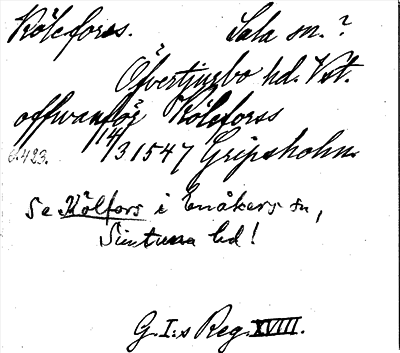 Köleforss. Sala sn.?
Öfvertjurbo hd. Vst.
offwanför Köleforss
14/3 1547 Gripsholm
s. 423.
Se Kölfors i Enåkers sn,
Simtuna hd!
G. I:s Reg. XVIII.